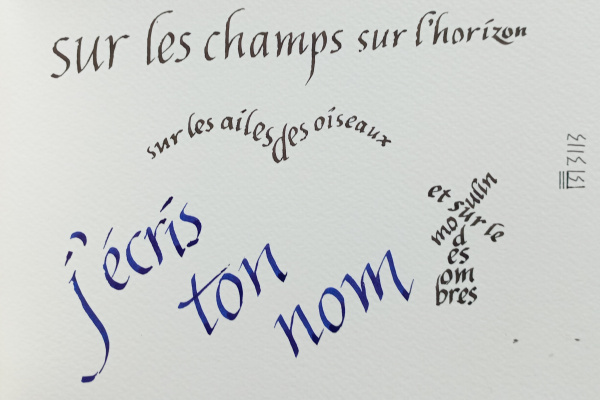 sur les champs sur l'horizon
sur les ailes des oiseaux
j'écris
ton
nom
et sur le
moulin
d
es
om
bres